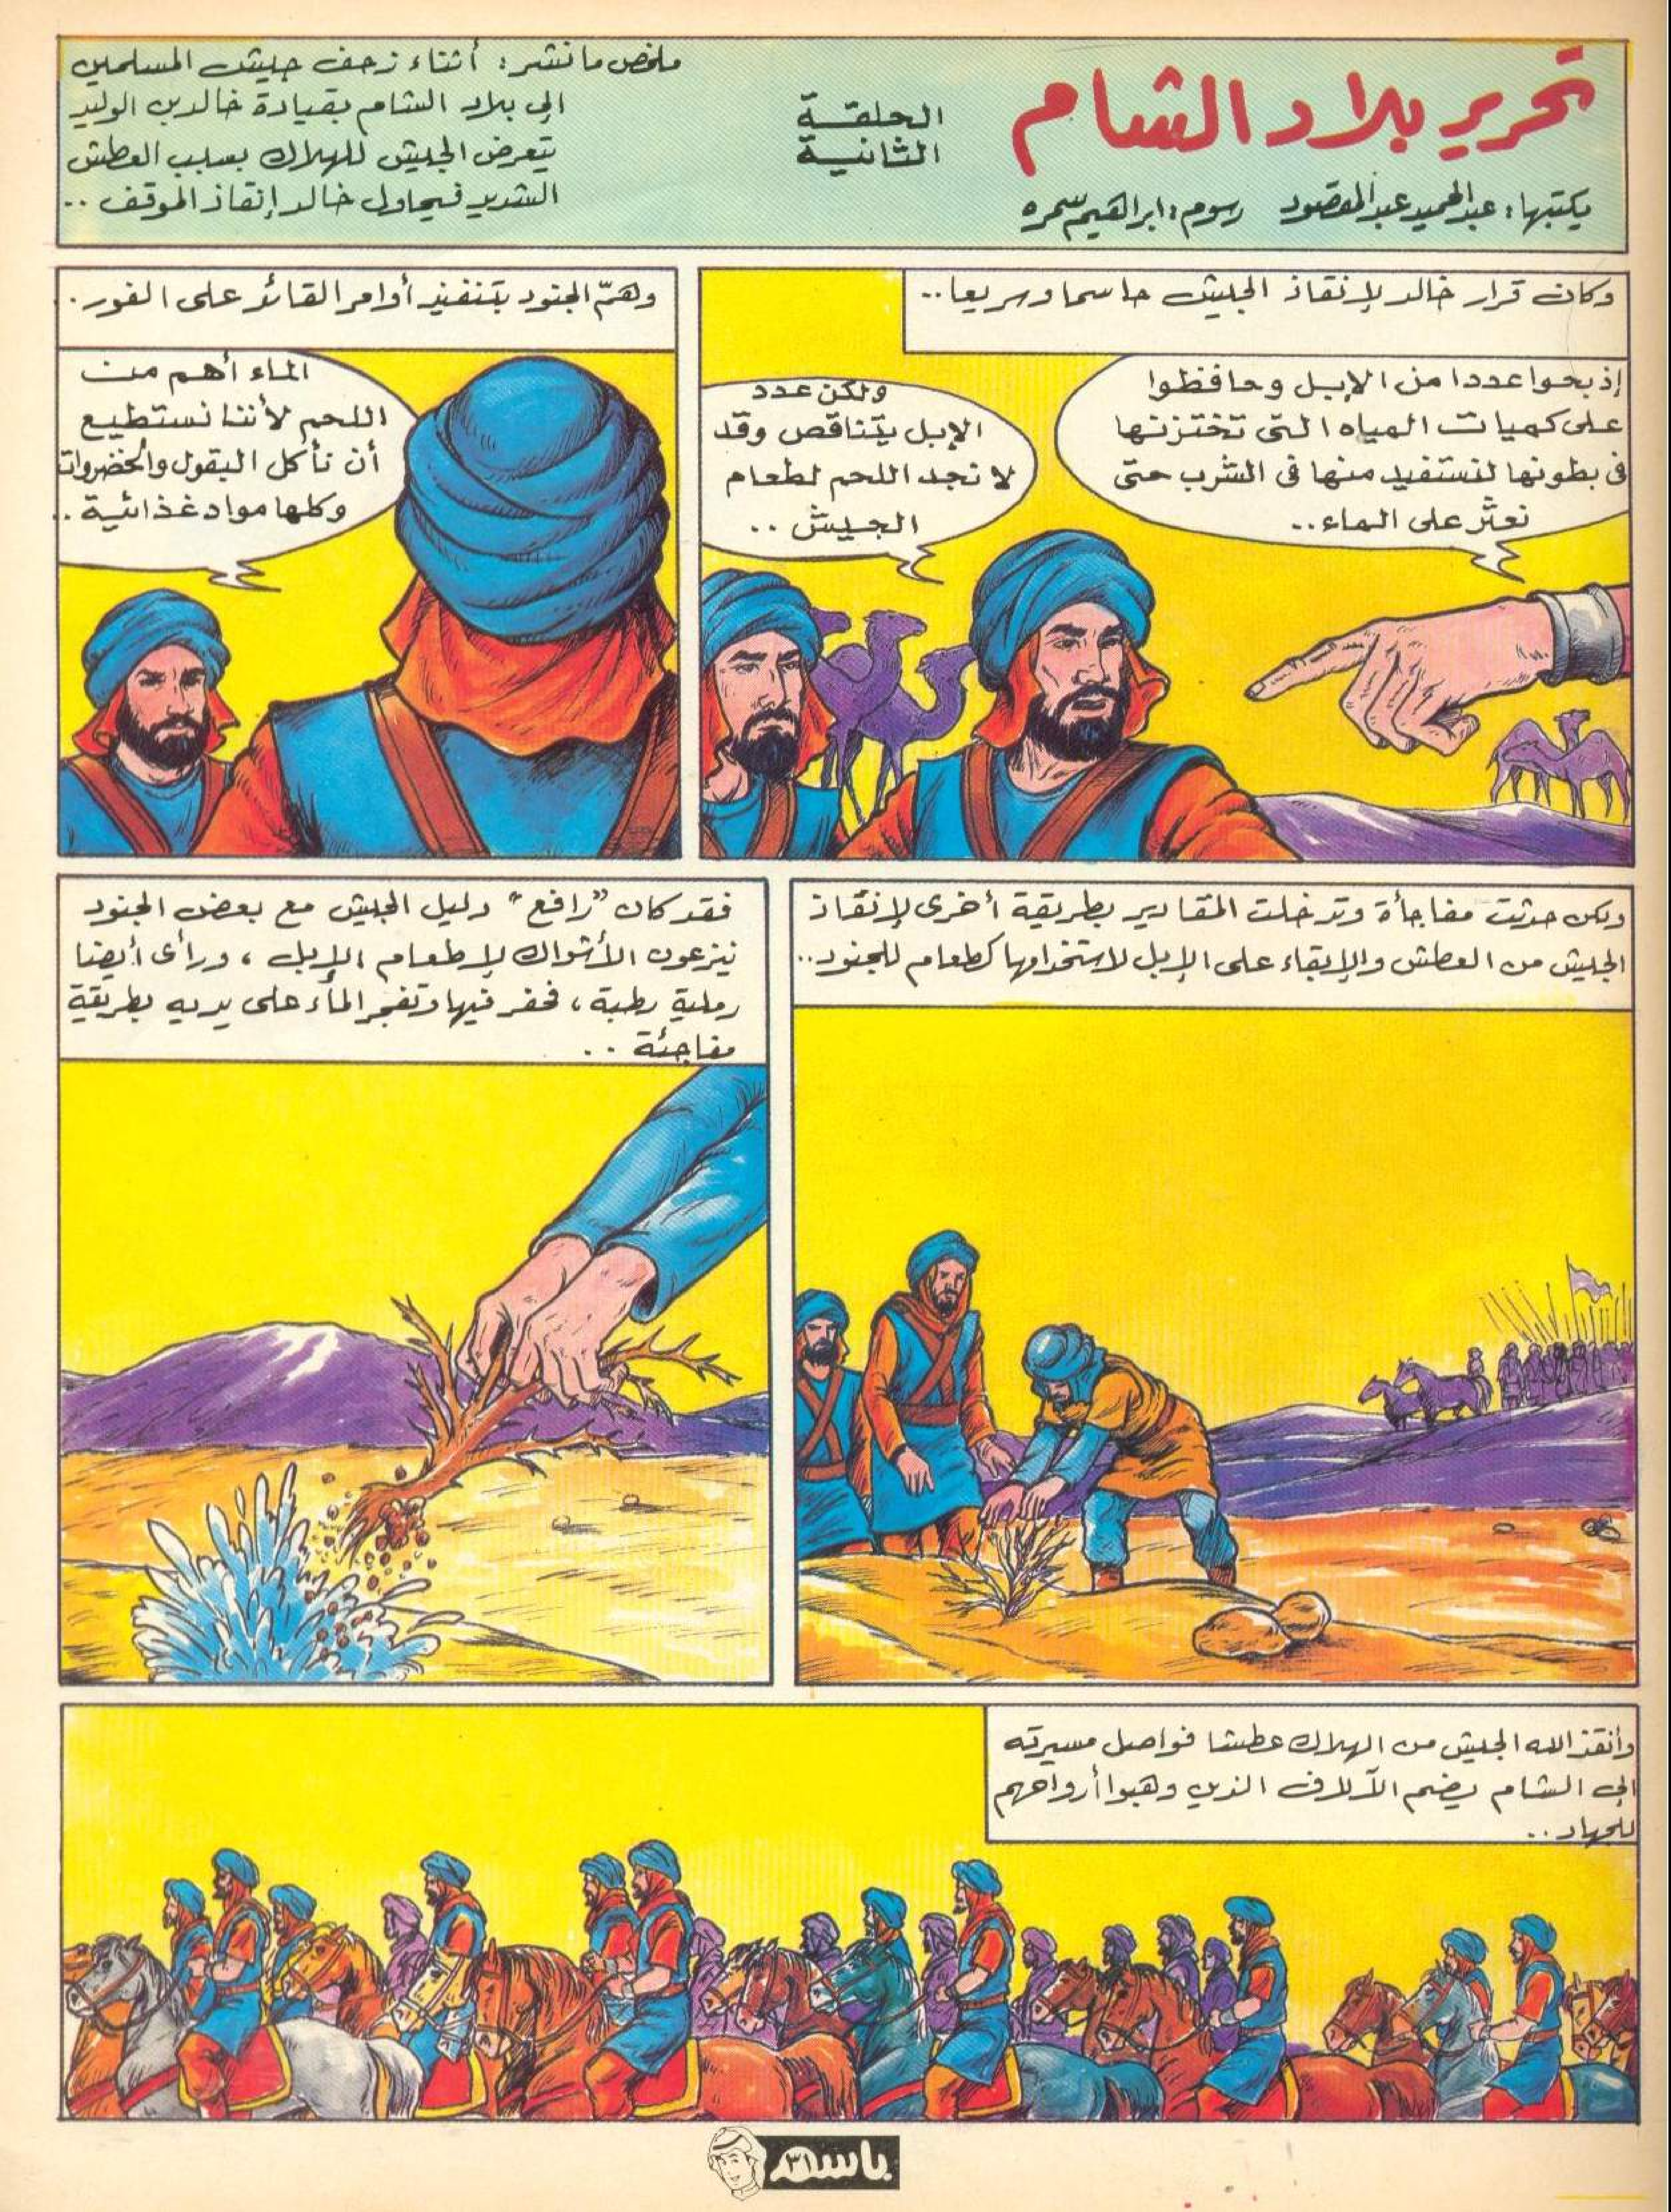 تحرير بلاد الشام
يكتبها: عبدالحميد عبدالمقصود رسوم: ابراهيم سمره
الحلقة
الثانية
ملخص ما نشر: أثناء زحف جيش المسلمين
إلى بلاد الشام بقيادة خالد بن الوليد
يتعرض الجيش للهلاك بسبب العطش
الشديد فيحاول خالد إنقاذ الموقف ..
وكان قرار خالد لإنقاذ الجيش حاسما وسريعا ..
إذبحوا عددا من الإبل وحافظوا
على كميات المياه التى تختزنها
فى بطونها لنستفيد منها فى الشرب حتى
نعثر على الماء ..
ولكن عدد
الإبل يتناقص وقد
لا نجد اللحم لطعام
الجيش ..
وهمّ الجنود بتنفيذ أوامر القائد على الفور .
الماء أهم من
اللحم لأننا نستطيع
أن نأكل البقول والخضروات
وكلها مواد غذائية ..
ولكن حدثت مفاجأة وتدخلت المقادير بطريقة أخرى لإنقاذ
الجيش من العطش والإبقاء على الإبل لاستخدامها كطعام للجنود ..
فقد كان "رافع" دليل الجيش مع بعض الجنود
ينزعون الأشواك لإطعام الإبل ، ورأى أيضا
رملية رطبة ، فحفر فيها وتفجر الماء على يديه بطريقة
مفاجئة ..
وأنقذ الله الجيش من الهلاك عطشا فواصل مسيرته
إلى الشام يضم الآلاف الذين وهبوا أرواحهم
للجهاد ..
باسم
٣١